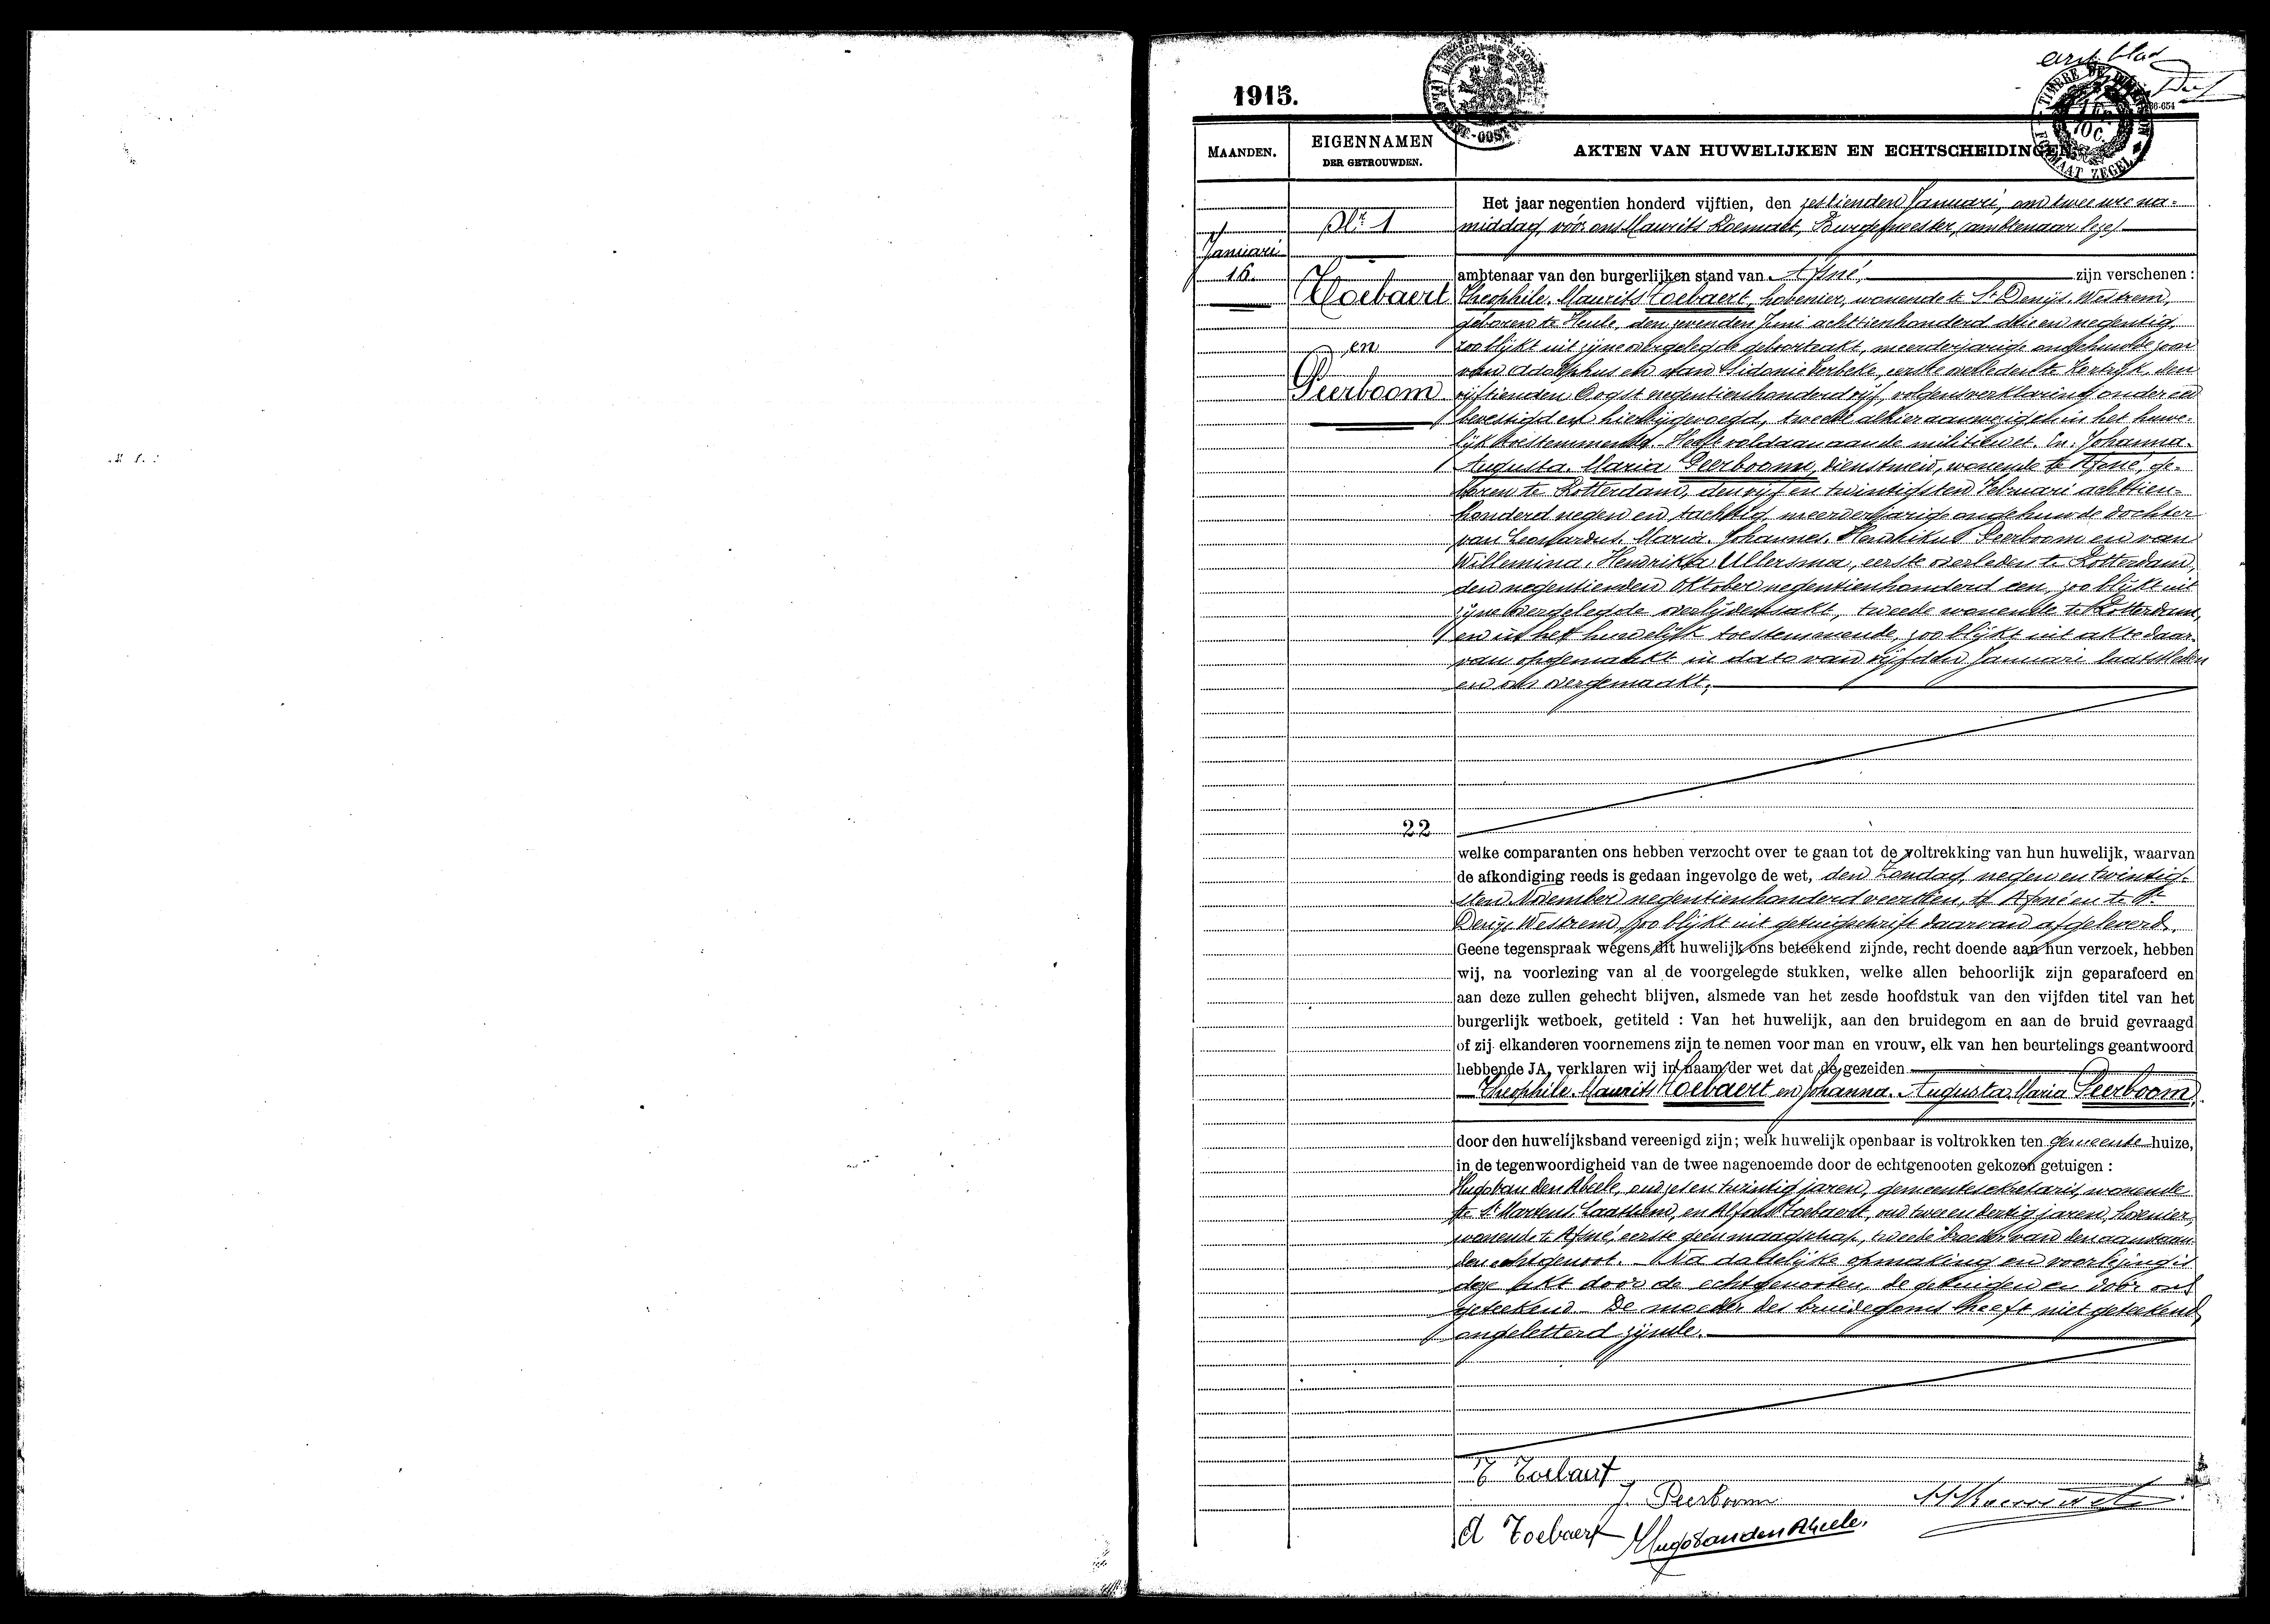 eerst blad
1915.
TIMBRE DE DIMENSION
1 FR.
10 C.
FORMAAT ZEGEL
MAANDEN.
EIGENNAMEN
DER GETROUWDEN.
AKTEN VAN HUWELIJKEN EN ECHTSCHEIDINGEN
Januari
16.
Nr 1
Toebaert
en
Peerboom
Het jaar negentien honderd vijftien, den zestienden Januari, om twee ure na-
middag, vóór ons Maurits Roemaet, Burgemeester, ambtenaar
ambtenaar van den burgerlijken stand van Afsné, zijn verschenen :
Theophile, Maurits Toebaert, hovenier, wonende te St Denijs Westrem,
geboren te Heule, den zevenden Juni achttienhonderd drie en negentig,
zoo blijkt uit zijne overgelegde geboorteakt, meerderjarige ongehuwde zoon
van Adolphus en van Sidonie Verbeke, eerste overleden te Kortrijk, den
vijftienden Oogst negentienhonderd vijf, volgens verklaring onder eed
bevestigd en hierbijgevoegd, tweede alhier aanwezig en in het huwe-
lijk toestemmende. Heeft voldaan aan de militiewet. En: Johanna.
Augusta. Maria Peerboom, dienstmeid, wonende te Afsné, ge-
boren te Rotterdam, den vijf en twintigsten Februari achttien-
honderd negen en tachtig, meerderjarige ongehuwde dochter
van Leonardus. Maria. Johannes. Henrikus Peerboom en van
Willemina, Henrikka Ullersma, eerste overleden te Rotterdam,
den negentienden Oktober negentienhonderd een, zoo blijkt uit
zijne overgelegde overlijdensakt, tweede wonende te Rotterdam,
en in het huwelijk toestemmende, zoo blijkt uit akte daar-
van opgemaakt in dato van vijfden Januari laatstleden
en ons overgemaakt.
22
welke comparanten ons hebben verzocht over te gaan tot de voltrekking van hun huwelijk, waarvan
de afkondiging reeds is gedaan ingevolge de wet, den Zondag, negen en twintig-
sten November negentienhonderd veertien, te Afsné en te St
Denijs Westrem, zoo blijkt uit getuigschrift daarvan afgeleverd.
Geene tegenspraak wegens dit huwelijk ons beteekend zijnde, recht doende aan hun verzoek, hebben
wij, na voorlezing van al de voorgelegde stukken, welke allen behoorlijk zijn geparafeerd en
aan deze zullen gehecht blijven, alsmede van het zesde hoofdstuk van den vijfden titel van het
burgerlijk wetboek, getiteld : Van het huwelijk, aan den bruidegom en aan de bruid gevraagd
of zij elkanderen voornemens zijn te nemen voor man en vrouw, elk van hen beurtelings geantwoord
hebbende JA, verklaren wij in naam der wet dat de gezeiden
Theophile. Maurits Toebaert en Johanna. Augusta. Maria Peerboom,
door den huwelijksband vereenigd zijn; welk huwelijk openbaar is voltrokken ten gemeente huize,
in de tegenwoordigheid van de twee nagenoemde door de echtgenooten gekozen getuigen :
Hugo Van den Abeele, oud zes en twintig jaren, gemeentesekretaris, wonende
te St Martens Laathem, en Alfons Toebaert, oud twee en dertig jaren, hovenier,
wonende te Afsné, eerste geen maagschap, tweede broeder van den aanstaan-
den echtgenoot. Na dadelijke opmaking en voorlezing is
deze akt door de echtgenooten, de getuigen en door ons
geteekend. De moeder des bruidegoms heeft niet geteekend,
ongeletterd zijnde.
T Toebaert
J. Peerboom
A Toebaert
Hugo Van den Abeele.